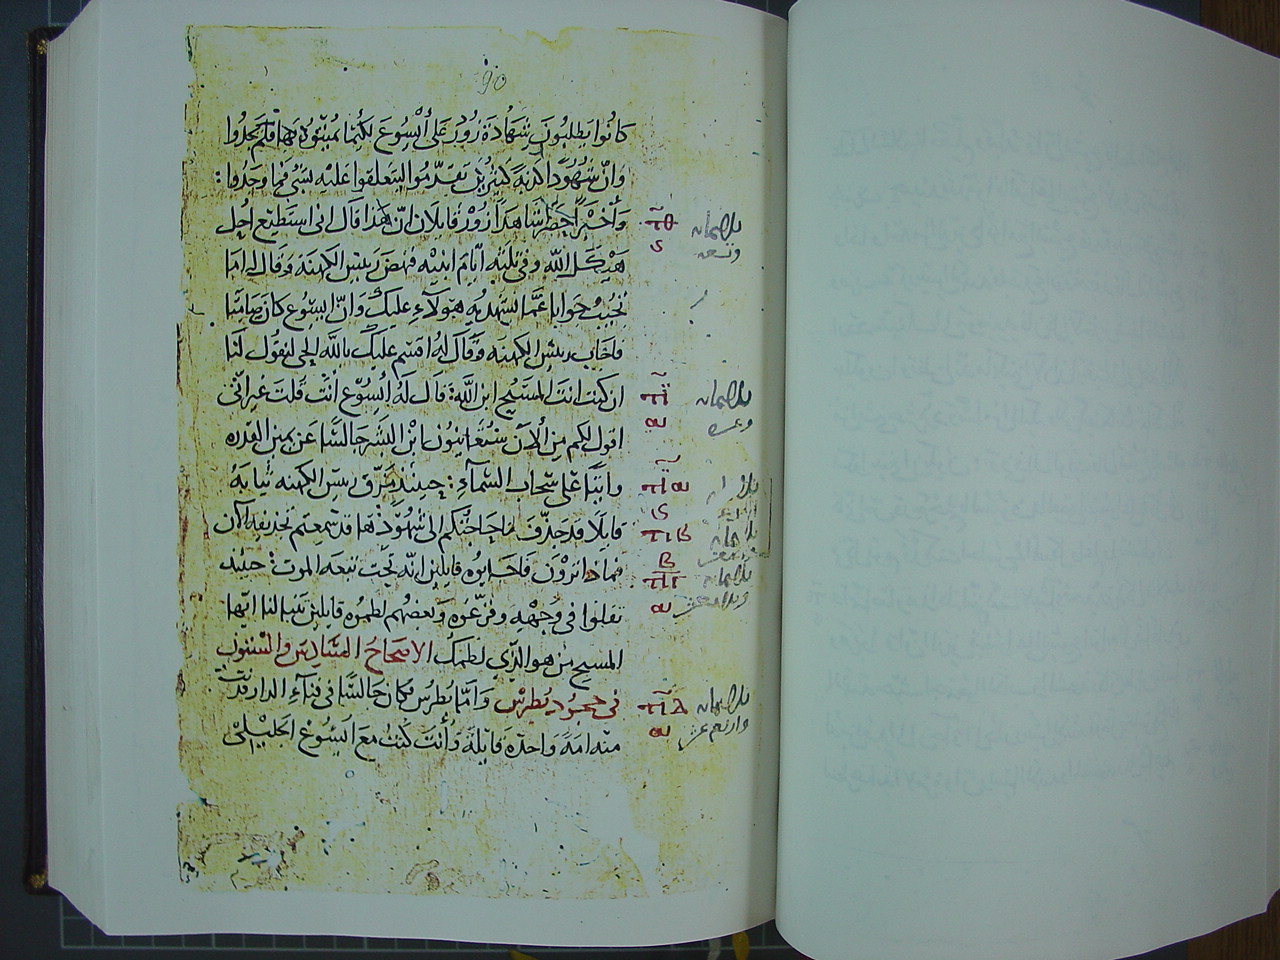 90
كانوا يطلبون شهادة زور على اليسوع لكيما يميتوه بها فلم يجدوا
وان شهودًا كذبة كثيرين تقدموا ليتعلقوا عليه بشي فما وجدوا :
وأخيرًا حضر شاهدا زور قايلان ان هذا قال انى استطيع احل
هيكل الله وفى ثلثه ايام ابنيه فنهض رييس الكهنة وقال له اما
تجيب جوابا عما تشهد به هولاء عليك وان اليسوع كان صامتا
فاجاب رييس الكهنه وقال له اقسم عليك بالله الحى لتقول لنا
ان كنت انت المسيح ابن الله: قال له اليسوع انت قلت غير انى
اقول لكم من الآن ستعاينون ابن البشر جالسا عن يمين القدره
واتيا على سحاب السمآء : حينيذ مزق رييس الكهنه ثيابه
قايلا قد جدف ما حاجتكم الى شهود ها قد سمعتم تجديفه الان
فماذا ترون فاجابوه قايلين انه تجب تبعه الموت: حينيذ
تفلوا فى وجهه وقزعوه وبعضهم لطموه قايلين تنبا لنا ايها
المسيح من هو الذي لطمك الاصحاح السادس والستون
فى جحود بطرس وأما بطرس فكان جالسا فى فنآء الدار فدنت
منه امة واحدة قايلة وأنت كنت مع اليسوع الجليلي